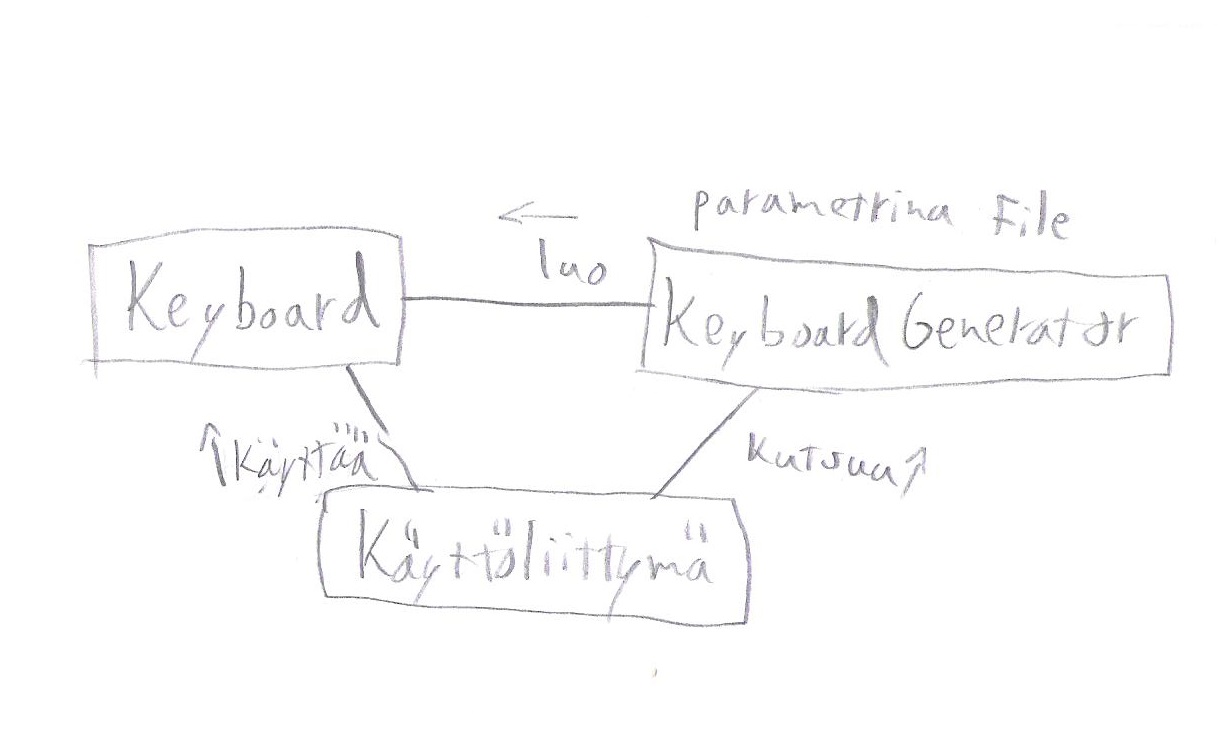 parametrina File
← luo
Keyboard
Keyboard Generator
↑ Käyttää
Kutsuu ↑
Käyttöliittymä